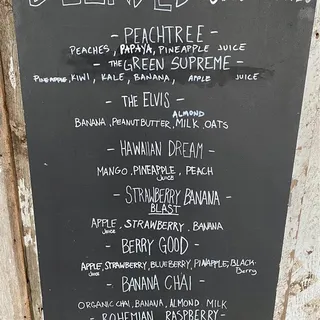 BLENDED
- PEACHTREE -
PEACHES, PAPAYA, PINEAPPLE JUICE
- THE GREEN SUPREME -
PINEAPPLE, KIWI, KALE, BANANA, APPLE JUICE
- THE ELVIS -
BANANA, PEANUT BUTTER, ALMOND MILK, OATS
- HAWAIIAN DREAM -
MANGO, PINEAPPLE JUICE, PEACH
- STRAWBERRY BANANA -
BLAST
APPLE JUICE, STRAWBERRY, BANANA
- BERRY GOOD -
APPLE JUICE, STRAWBERRY, BLUEBERRY, PINAPPLE, BLACK-
Berry
- BANANA CHAI -
ORGANIC CHAI, BANANA, ALMOND MILK
- BOHEMIAN RASPBERRY -